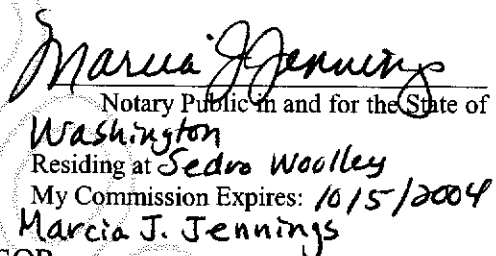 Marcia J. Jennings
Notary Public in and for the State of
Washington
Residing at Sedro Woolley
My Commission Expires: 10/5/2004
Marcia J. Jennings